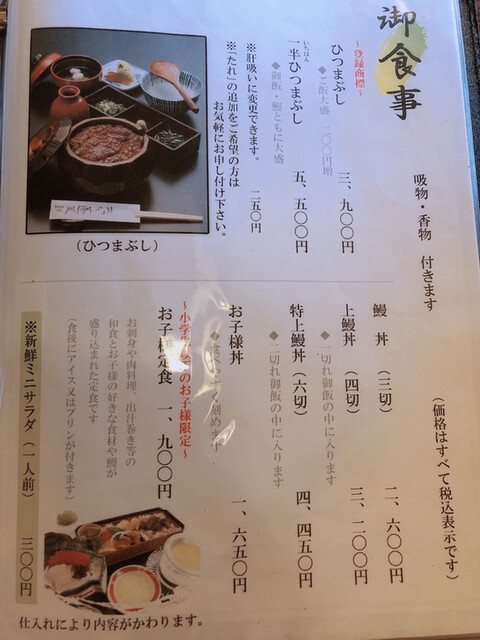 御食事
吸物・香物　付きます
(価格はすべて税込表示です)
～登録商標～
ひつまぶし　三、九〇〇円
◆ご飯大盛　二〇〇円増
いちはん
一半ひつまぶし　五、五〇〇円
◆御飯・鰻ともに大盛
※肝吸いに変更できます。　二五〇円
※「たれ」の追加をご希望の方は
お気軽にお申し付け下さい。
(ひつまぶし)
鰻丼　(三切)　二、六〇〇円
上鰻丼　(四切)　三、二〇〇円
◆一切れ御飯の中に入ります
特上鰻丼　(六切)　四、四五〇円
◆二切れ御飯の中に入ります
お子様丼　一、六五〇円
く刻めます
のお子様限定～
お子様定食　一、九〇〇円
お刺身や肉料理、出汁巻き等の
和食とお子様の好きな食材や鰻が
盛り込まれた定食です
(食後にアイス又はプリンが付きます)
※新鮮ミニサラダ(一人前)　三〇〇円
仕入れにより内容がかわります。